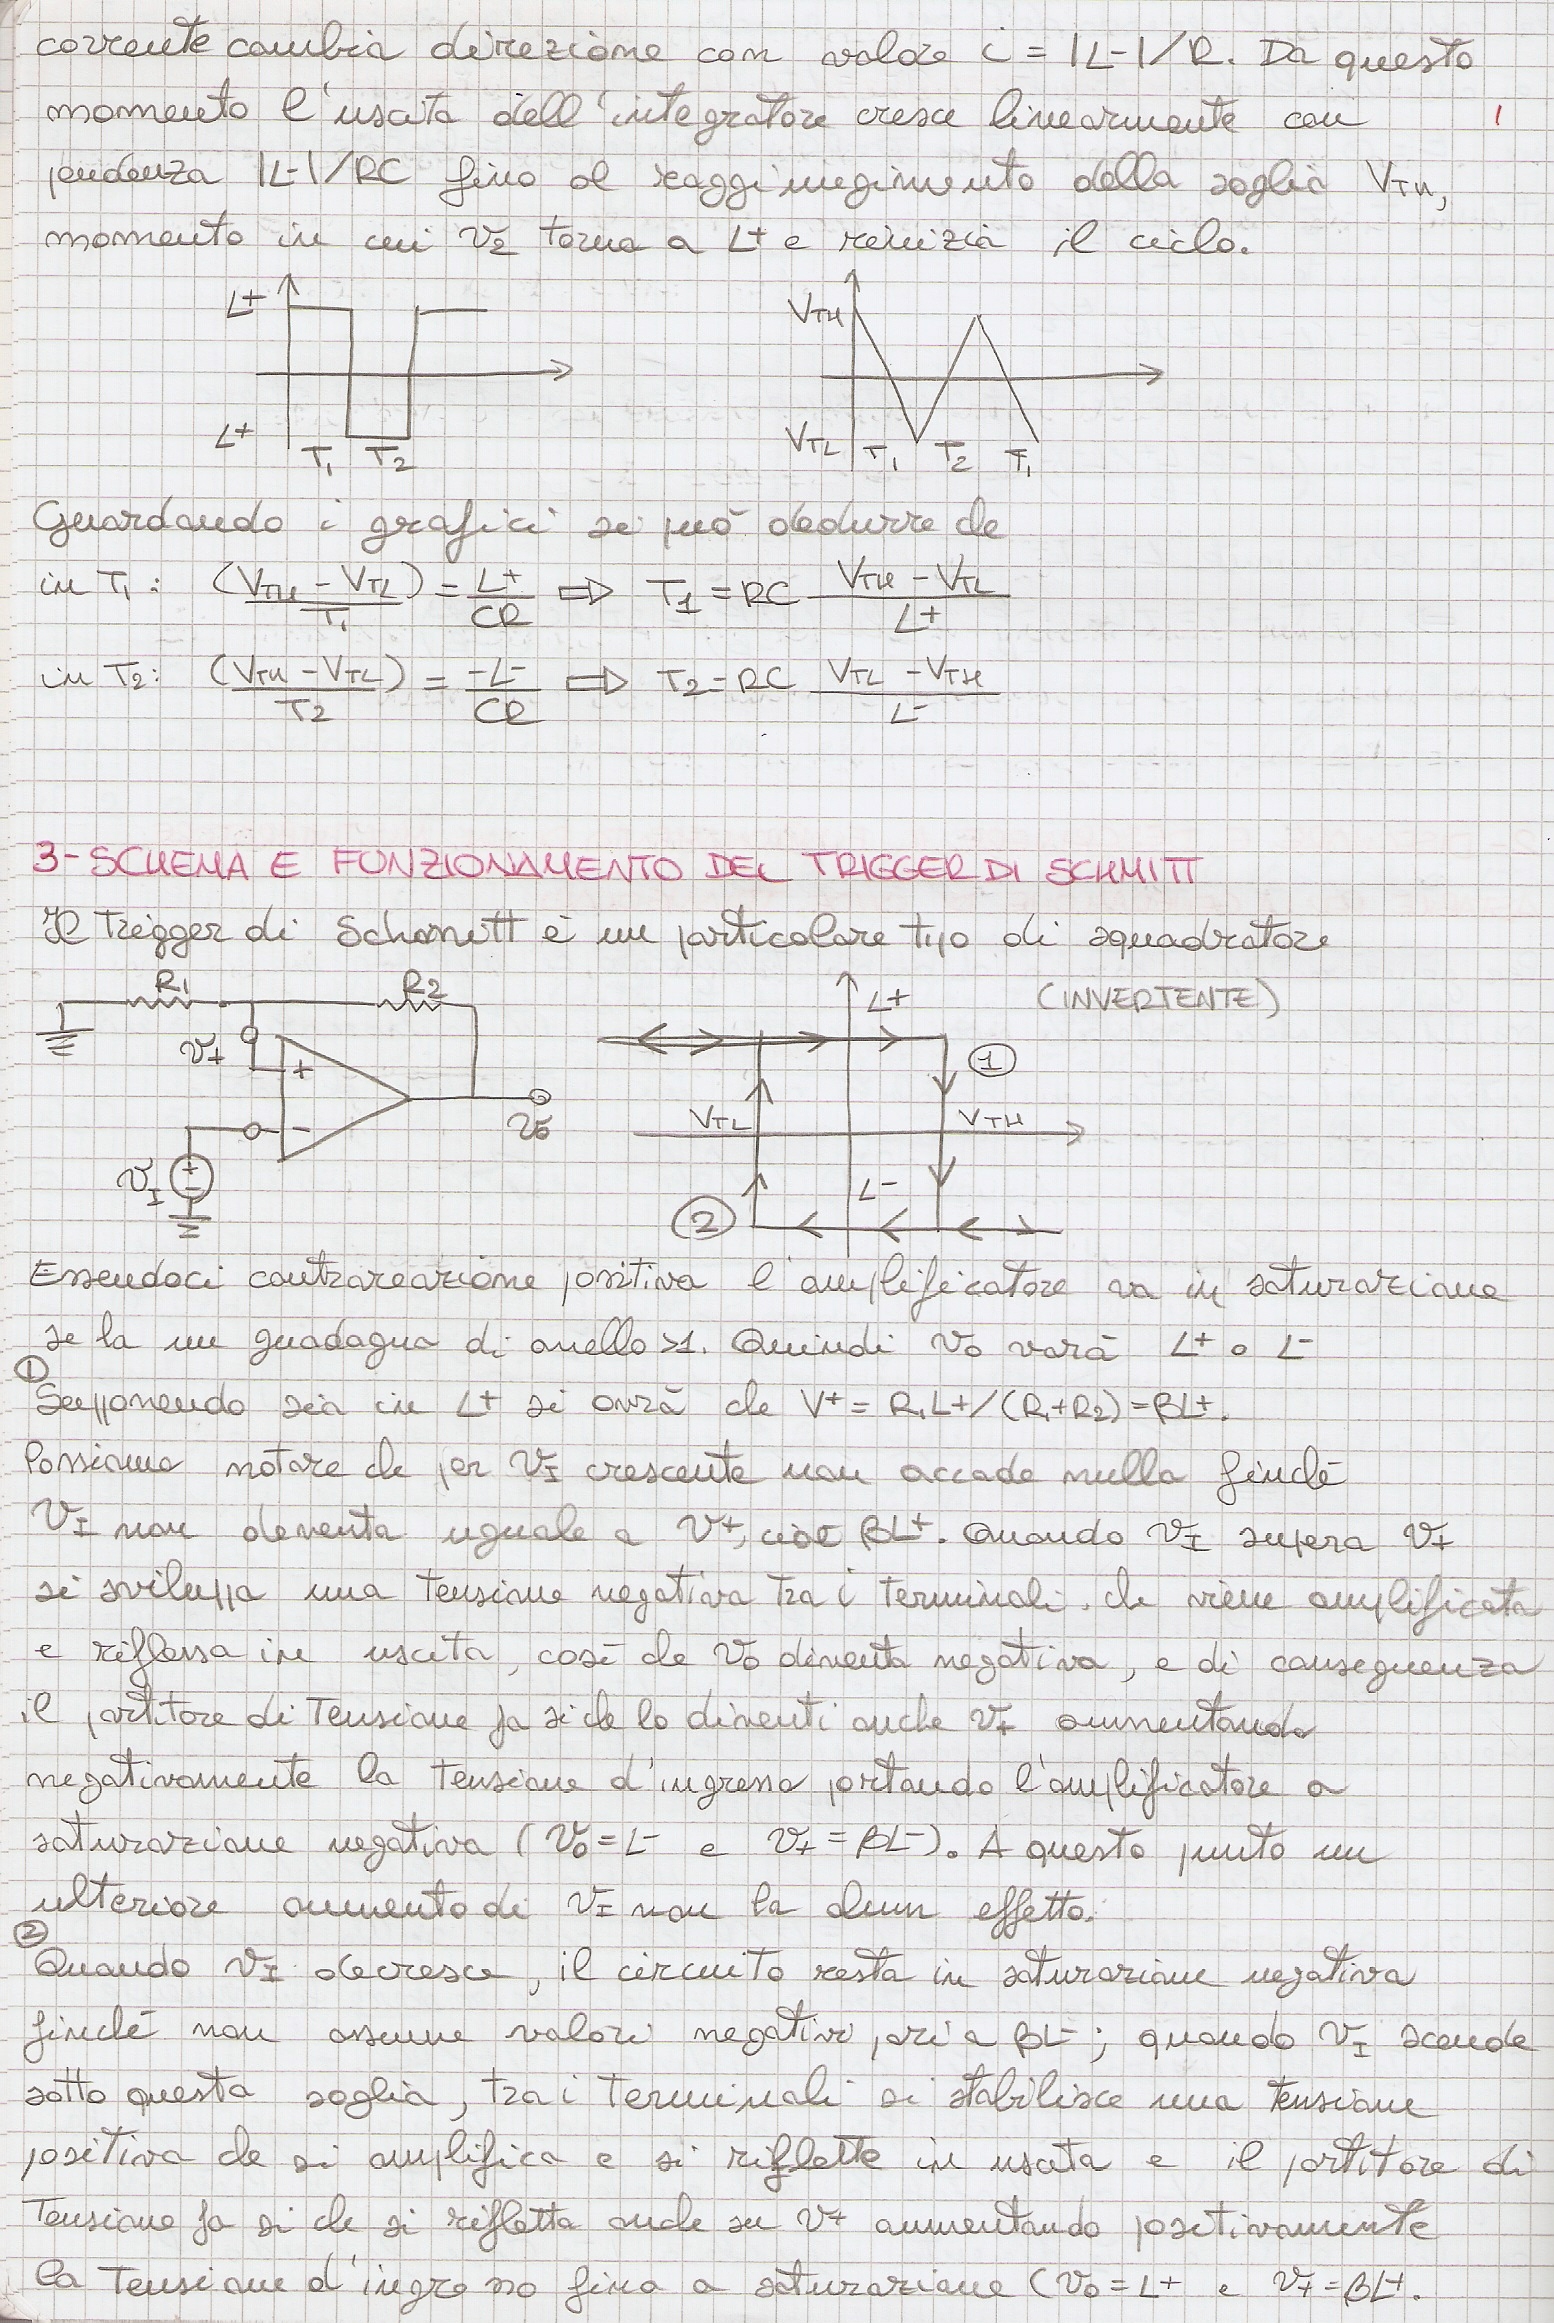 corrente cambia direzione con valore i = |L-|/R. Da questo
momento l'uscita dell'integratore cresce linearmente con
pendenza |L-|/RC fino al raggiungimento della soglia VTH,
momento in cui v2 torna a L+ e reinizia il ciclo.
L+
L+
T1 T2
VTH
VTL
T1 T2 T1
Guardando i grafici si può dedurre che
in T1: (VTH - VTL)/T1 = L+/CR ⇨ T1 = RC (VTH - VTL)/L+
in T2: (VTH - VTL)/T2 = -L-/CR ⇨ T2 = RC (VTL - VTH)/L-
3- SCHEMA E FUNZIONAMENTO DEL TRIGGER DI SCHMITT
Il trigger di Schmitt è un particolare tipo di squadratore
(INVERTENTE)
R1 R2
v+
+
-
vo
vI
+
-
L+
1
VTL
VTH
L-
2
Essendoci controreazione positiva l'amplificatore va in saturazione
se ha un guadagno di anello >1. Quindi vo varrà L+ o L-
① Supponendo sia in L+ si avrà che V+ = R1L+/(R1+R2) = βL+.
Possiamo notare che per vI crescente non accade nulla finché
vI non deventa uguale a v+, cioè βL+. Quando vI supera v+
si sviluppa una tensione negativa tra i terminali. che viene amplificata
e riflessa in uscita, così che vo diventa negativa, e di conseguenza
il partitore di tensione fa si che lo diventi anche v+ aumentando
negativamente la tensione d'ingresso portando l'amplificatore a
saturazione negativa (vo = L- e v+ = βL-). A questo punto un
ulteriore aumento di vI non ha alcun effetto.
② Quando vI decresce, il circuito resta in saturazione negativa
finché non assume valori negativi pari a βL-; quando vI scende
sotto questa soglia, tra i terminali si stabilisce una tensione
positiva che si amplifica e si riflette in uscita e il partitore di
tensione fa si che si rifletta anche su v+ aumentando positivamente
la tensione d'ingresso fino a saturazione (vo = L+ e v+ = βL+.